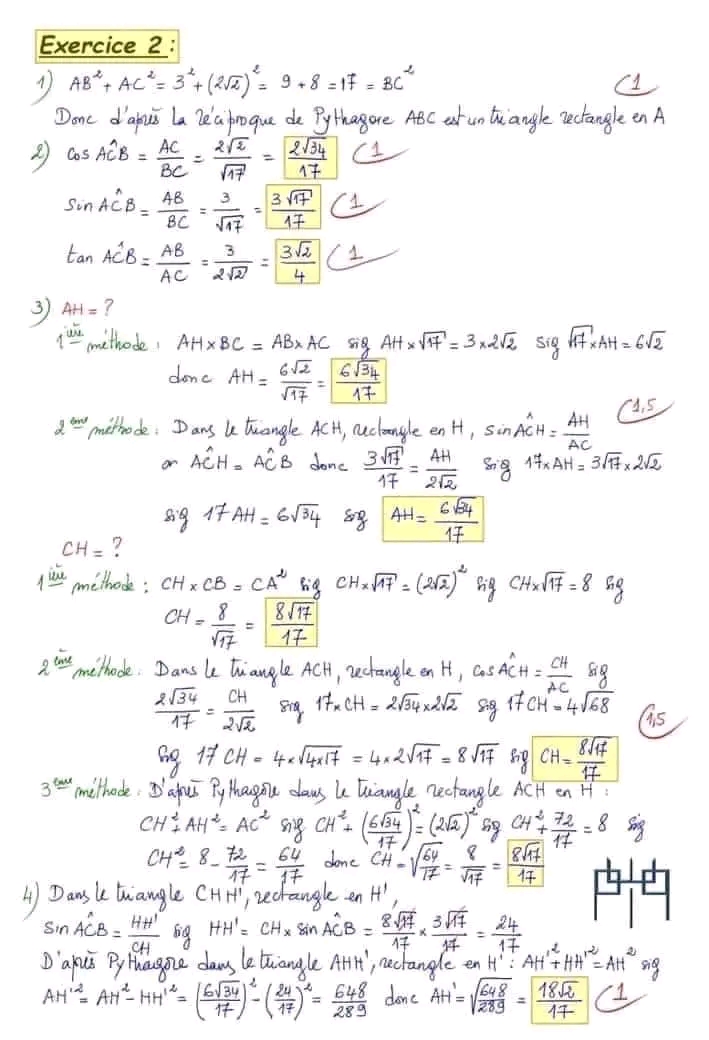 Exercice 2 :
1) AB² + AC² = 3² + (2√2)² = 9 + 8 = 17 = BC² 1
Donc d'après la réciproque de Pythagore ABC est un triangle rectangle en A
2) cos AĈB = AC/BC = 2√2/√17 = 2√34/17 1
sin AĈB = AB/BC = 3/√17 = 3√17/17 1
tan AĈB = AB/AC = 3/2√2 = 3√2/4 1
3) AH = ?
1ière méthode : AH × BC = AB × AC sig AH × √17 = 3 × 2√2 sig √17 × AH = 6√2
donc AH = 6√2/√17 = 6√34/17
1,5
2ème méthode : Dans le triangle ACH, rectangle en H, sin AĈH = AH/AC
or AĈH = AĈB donc 3√17/17 = AH/2√2 sig 17 × AH = 3√17 × 2√2
sig 17 AH = 6√34 sig AH = 6√34/17
CH = ?
1ière méthode : CH × CB = CA² sig CH × √17 = (2√2)² sig CH × √17 = 8 sig
CH = 8/√17 = 8√17/17
2ème méthode : Dans le triangle ACH, rectangle en H, cos AĈH = CH/AC sig
2√34/17 = CH/2√2 sig 17 × CH = 2√34 × 2√2 sig 17 CH = 4√68
1,5
sig 17 CH = 4 × √4×17 = 4 × 2√17 = 8√17 sig CH = 8√17/17
3ème méthode : D'après Pythagore dans le triangle rectangle ACH en H :
CH² + AH² = AC² sig CH² + (6√34/17)² = (2√2)² sig CH² + 72/17 = 8 sig
CH² = 8 - 72/17 = 64/17 donc CH = √64/17 = 8/√17 = 8√17/17
4) Dans le triangle CHH', rectangle en H',
sin AĈB = HH'/CH sig HH' = CH × sin AĈB = 8√17/17 × 3√17/17 = 24/17
D'après Pythagore dans le triangle AHH', rectangle en H' : AH'² + HH'² = AH² sig
AH'² = AH² - HH'² = (6√34/17)² - (24/17)² = 648/289 donc AH' = √648/289 = 18√2/17 1